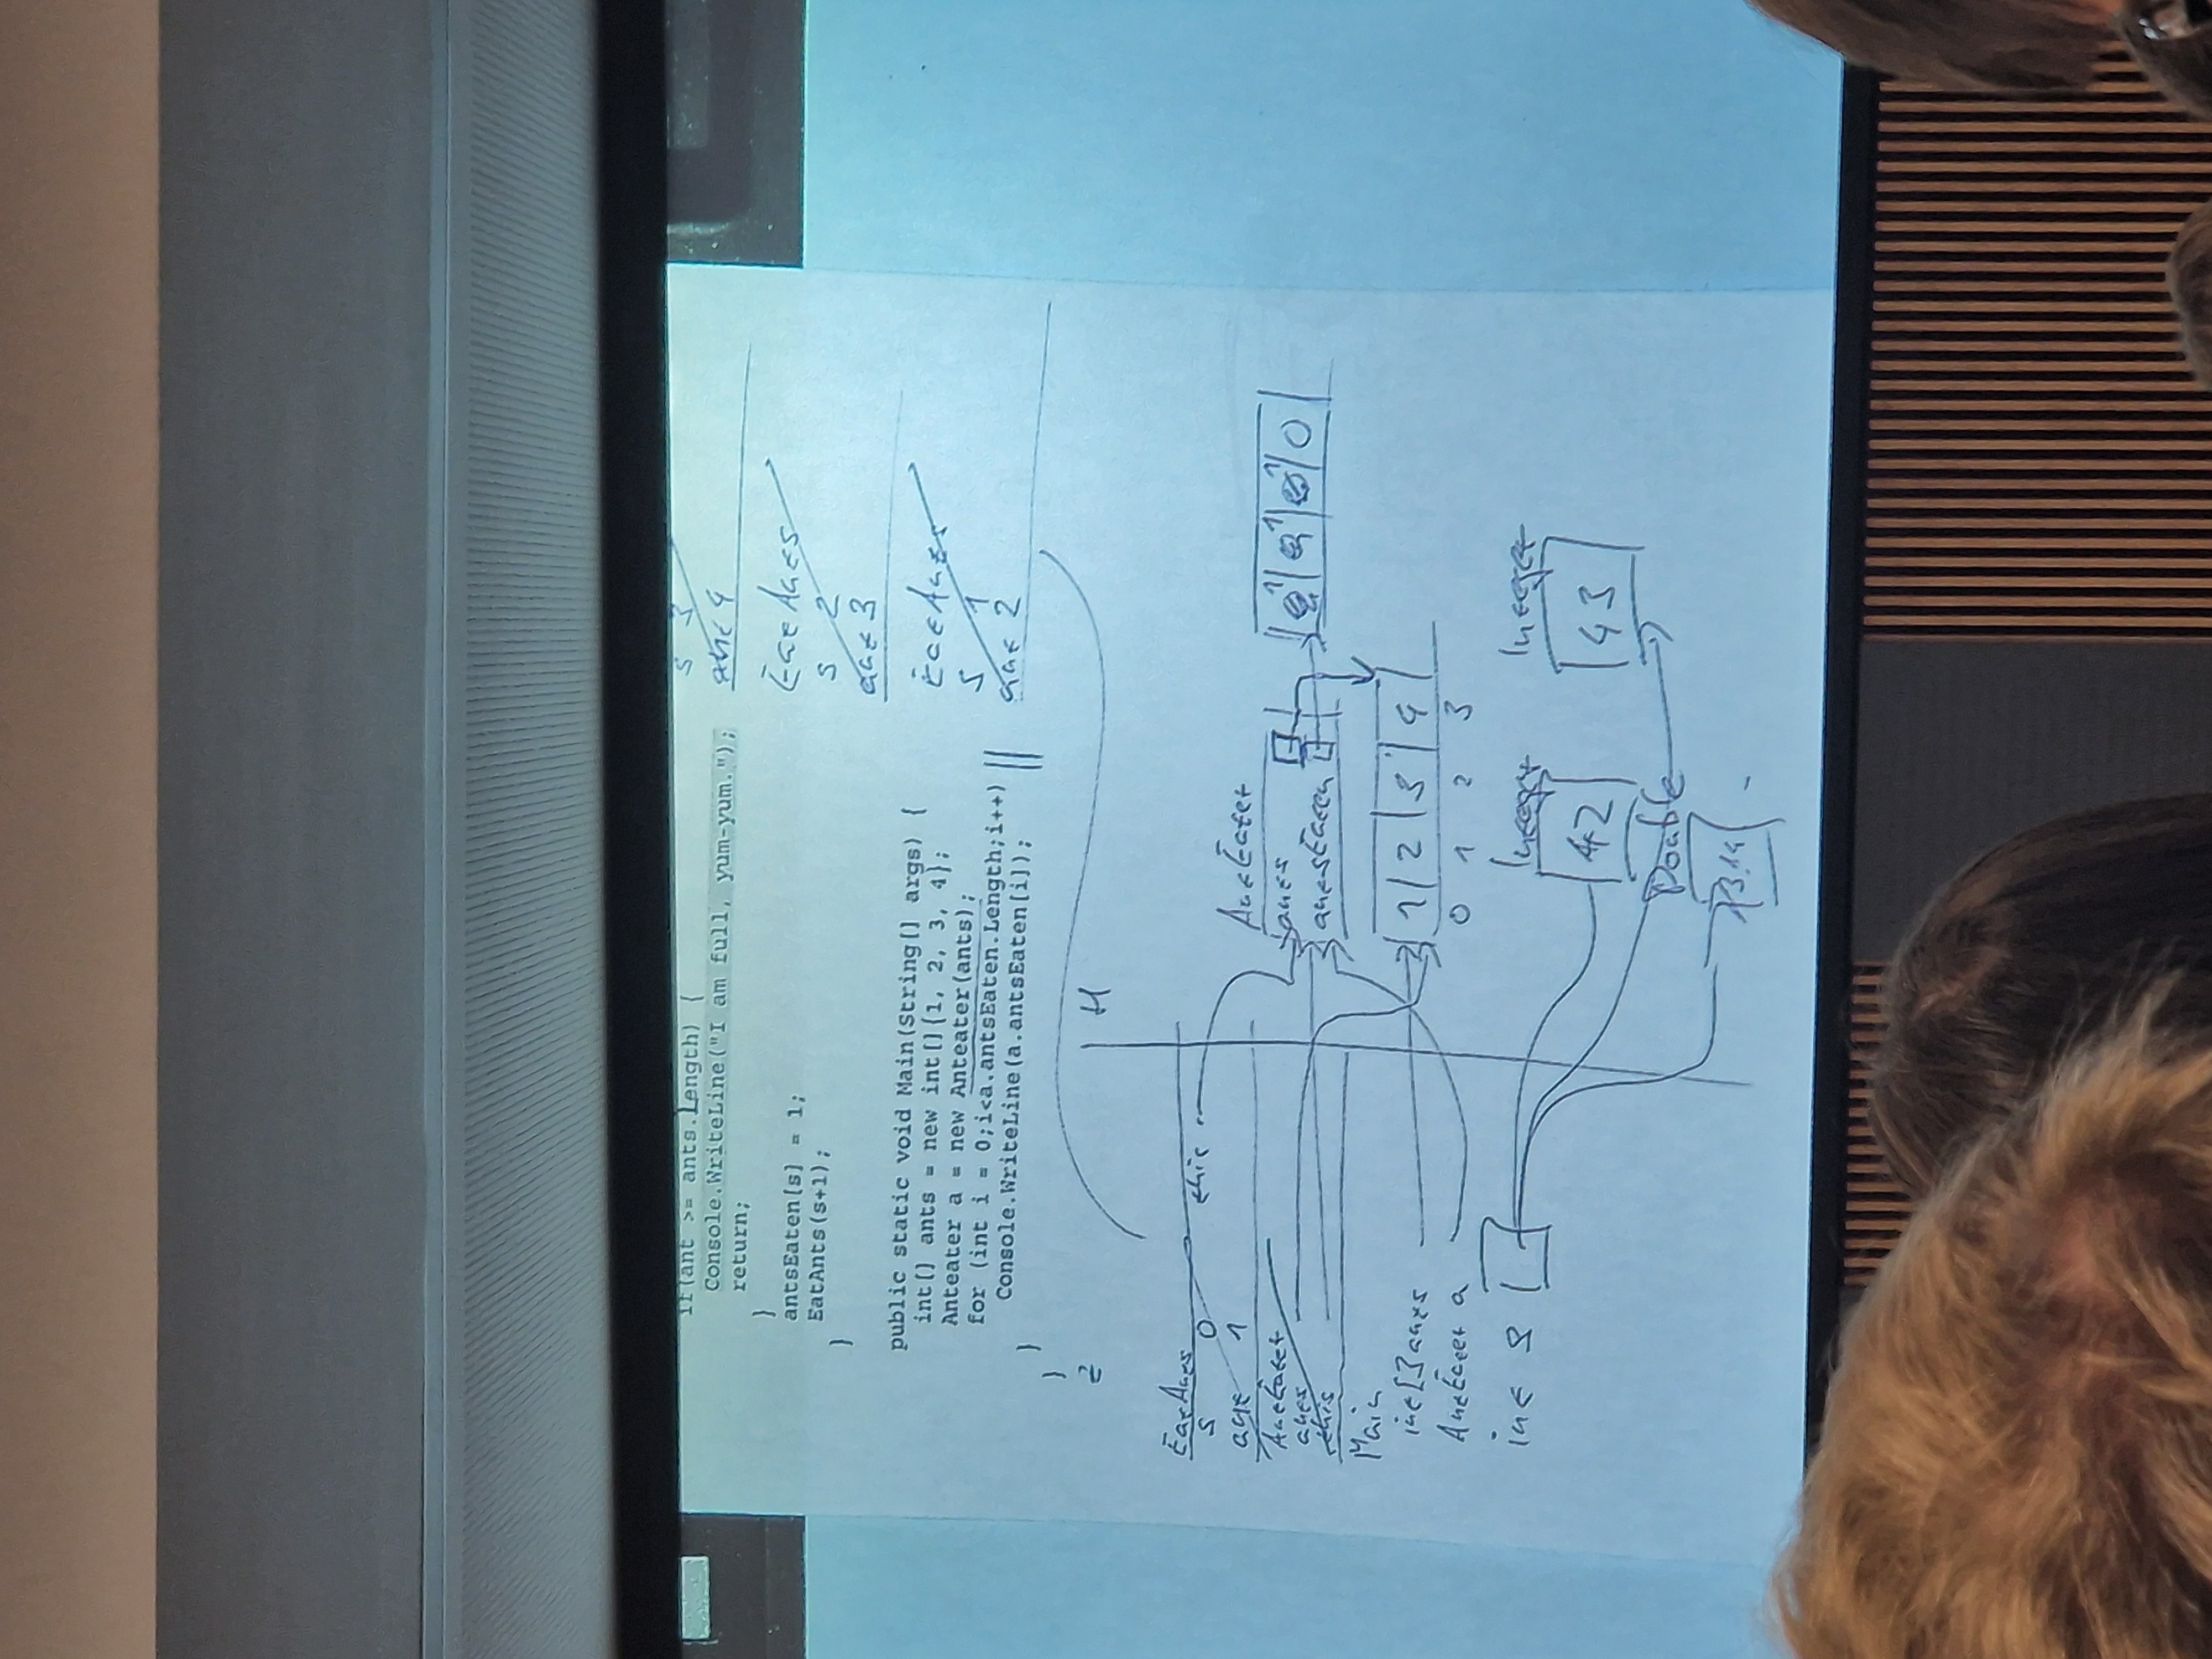 if(ant >= ants.Length) {
Console.WriteLine("I am full, yum-yum.");
return;
}
antsEaten[s] = 1;
EatAnts(s+1);
}
public static void Main(String[] args) {
int[] ants = new int[]{1, 2, 3, 4};
Anteater a = new Anteater(ants);
for (int i = 0;i<a.antsEaten.Length;i++)
Console.WriteLine(a.antsEaten[i]);
}
}
s 3
ant 4
EatAnts
s 2
ant 3
EatAnts
s 1
ant 2
H
EatAnts
s 0 this
ant 1
AntEater
ants
this
Main
int[] ants
AntEater a
int s
AntEater
ants
antsEaten
1 1 1 0
1 2 3 4
0 1 2 3
Integer Integer
42 43
Double
3.14